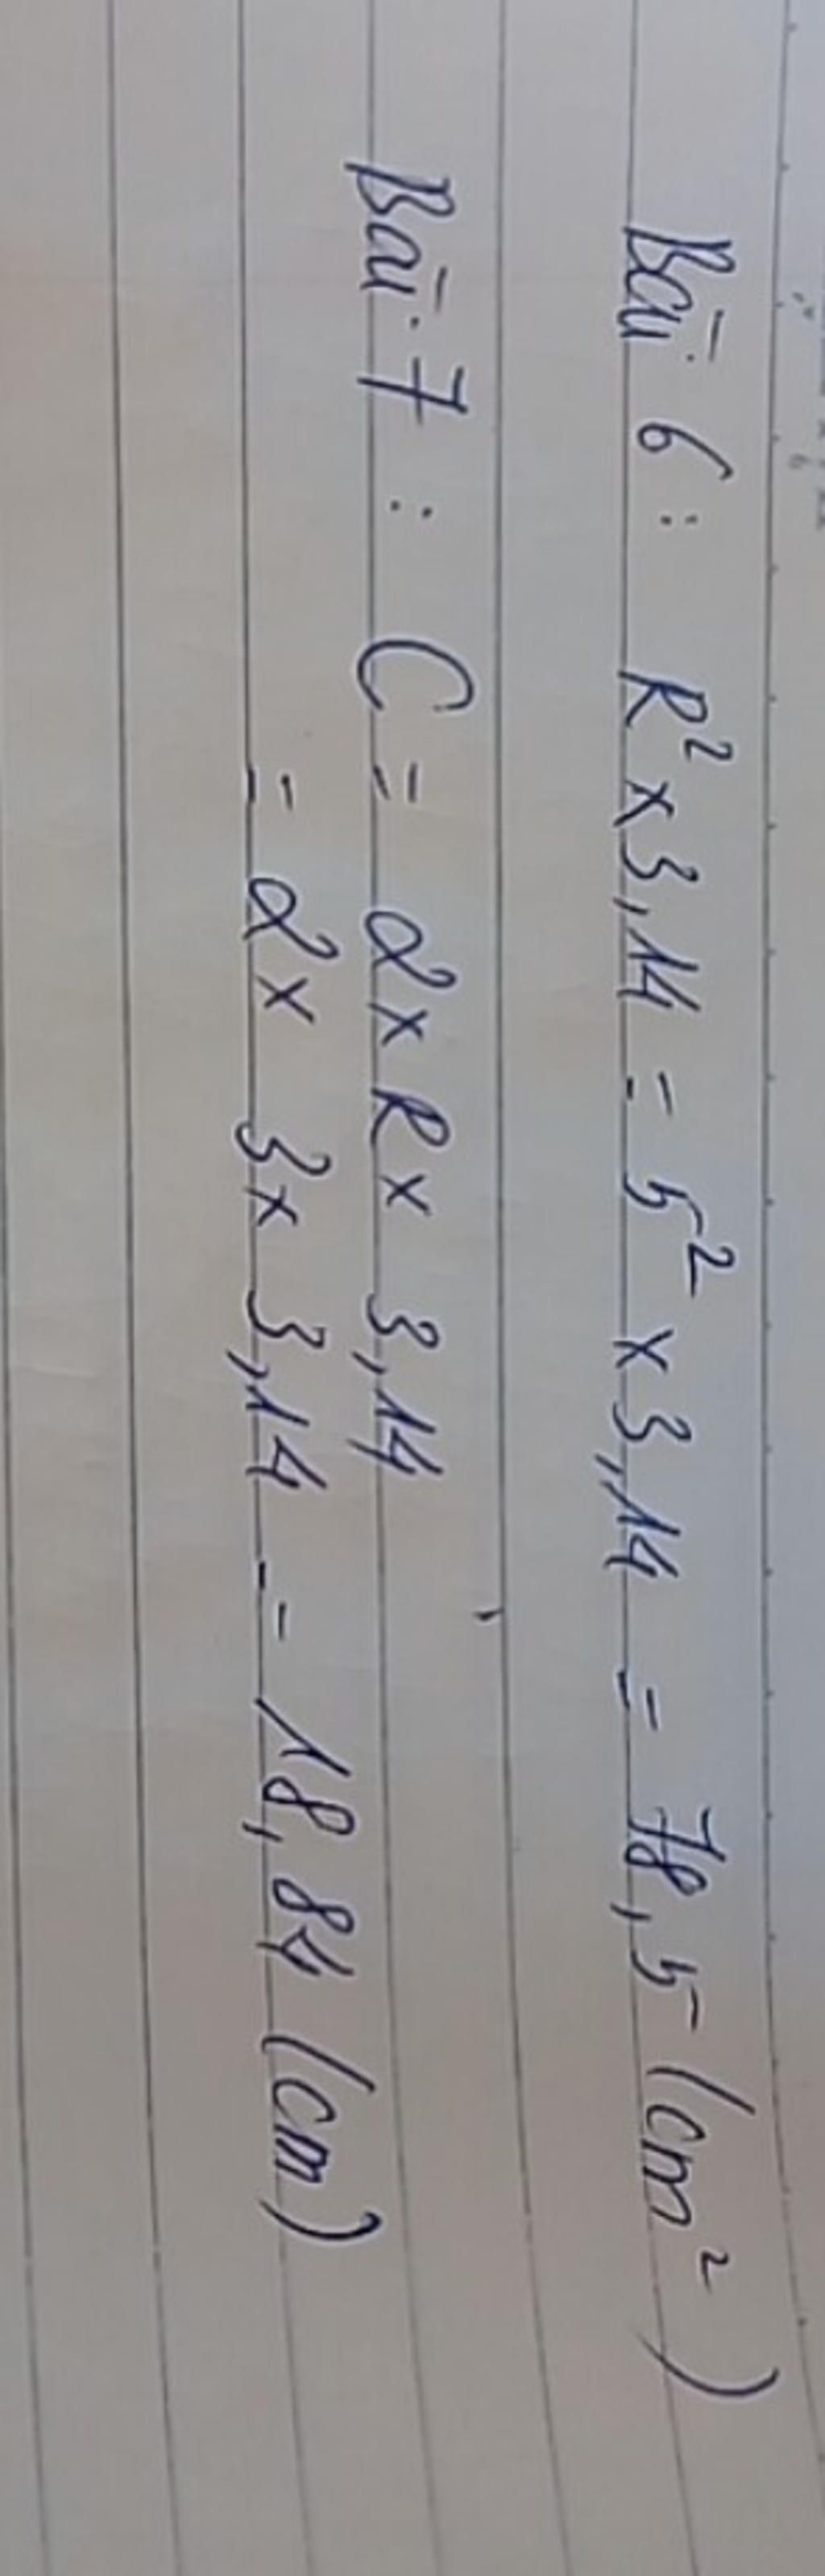 Bài 6 : R² x 3,14 = 5² x 3,14 = 78,5 (cm²)
Bài 7 : C = 2 x R x 3,14
= 2 x 3 x 3,14 = 18,84 (cm)